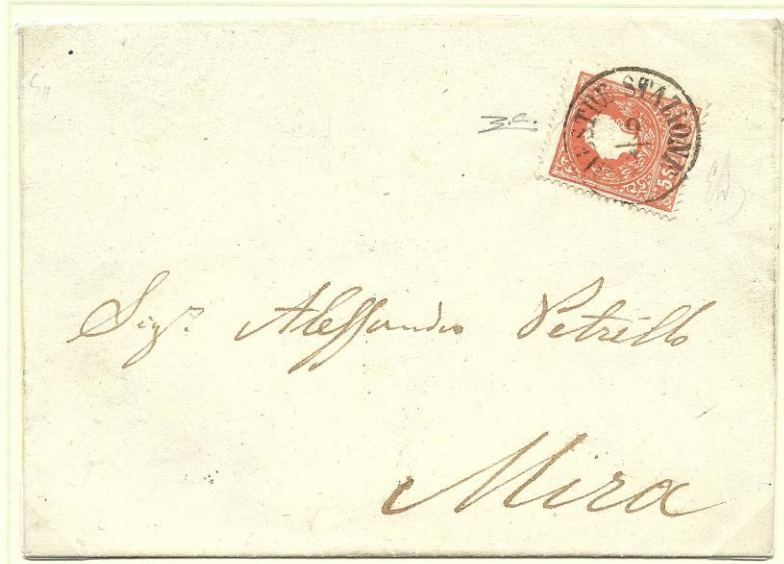 MESTRE STAZIONE
9
5 S
Sigr. Alessandro Petrillo
Mira